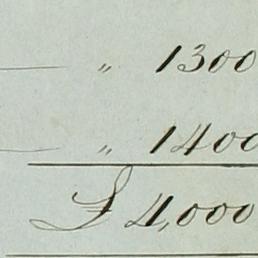 — " 1300
— " 1400
£ 4,000